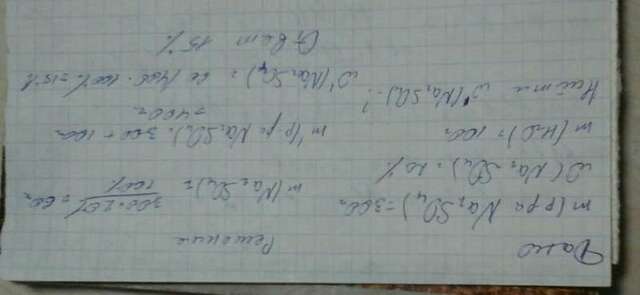 Дано
Решение
m(р-ра Na₂SO₄)=300г
m(Na₂SO₄)= 300·20% / 100% =60г
ω(Na₂SO₄)=20%
m(H₂O)=100г
m'(р-ра Na₂SO₄)=300+100=
=400г
Найти ω'(Na₂SO₄)-?
ω'(Na₂SO₄)= 60/400·100%=15%
Ответ 15%